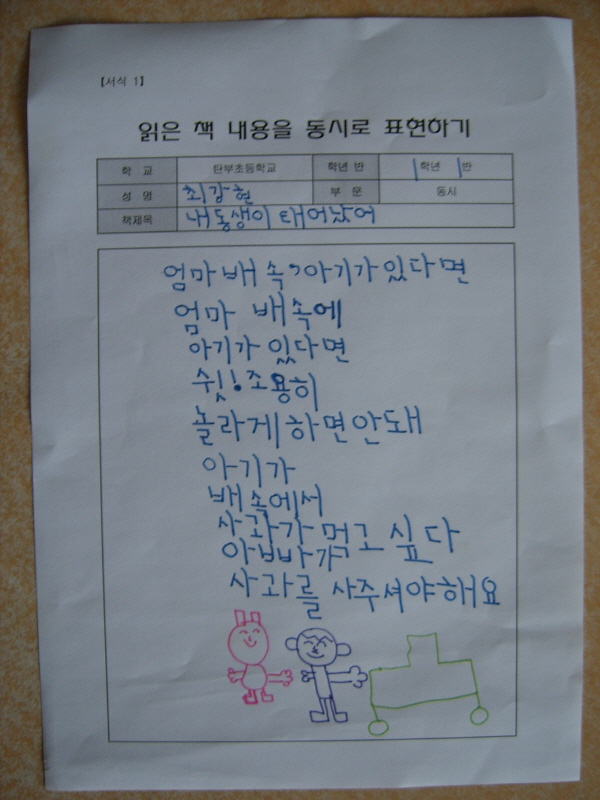 【서식 1】
읽은 책 내용을 동시로 표현하기
학 교 탄부초등학교 학년 반 1학년 1반
성 명 최강현 부 문 동시
책제목 내 동생이 태어났어
엄마 배 속에 아기가 있다면
엄마 배속에
아기가 있다면
쉬잇! 조용히
놀라게 하면 안돼
아기가
배속에서
사과가 먹고 싶다
아빠가
사과를 사주셔야해요